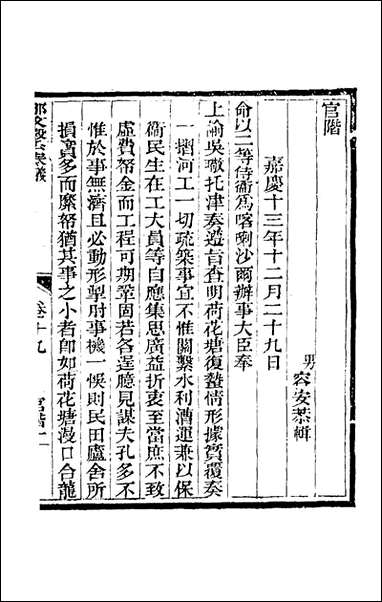 官階
男 容安恭輯
嘉慶十三年十二月二十九日
命以二等侍衞爲喀喇沙爾辦事大臣奉
上諭吳璥托津奏遵旨查明荷花塘復蟄情形據實覆奏
一摺河工一切疏築事宜不惟關繫水利漕運兼以保
衞民生在工大員等自應集思廣益折衷至當庶不致
虛費帑金而工程可期鞏固若各逞臆見謀夫孔多不
惟於事無濟且必動形掣肘事機一悞則民田廬舍所
損實多而縻帑猶其事之小者卽如荷花塘漫口合龍
那文毅公奏議
卷十九
官階二